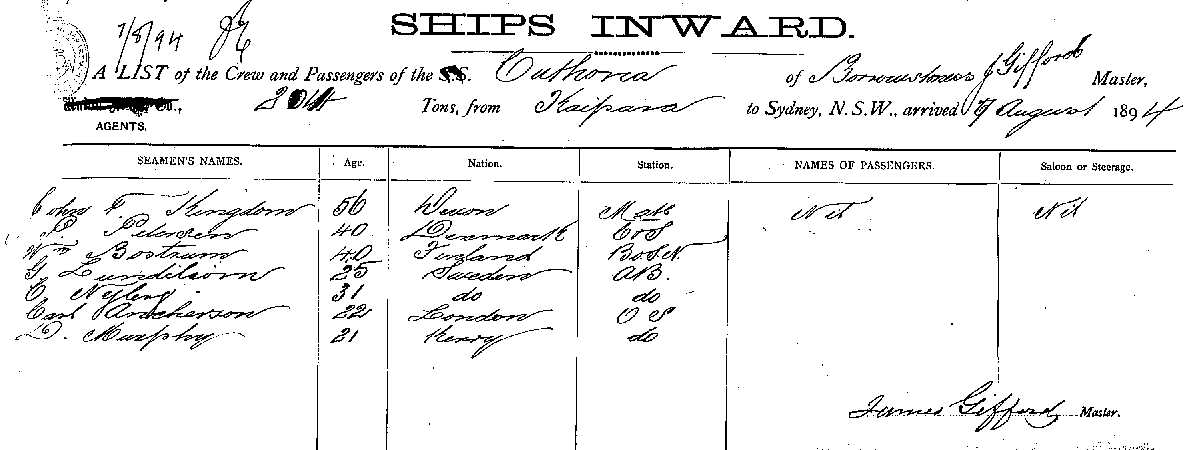 SHIPS INWARD.
7/8/94
A LIST of the Crew and Passengers of the S.S. of J Gifford Master,
Tons, from Kaipara to Sydney, N.S.W., arrived 7 August 1894
AGENTS.
SEAMEN'S NAMES. Age. Nation. Station. NAMES OF PASSENGERS. Saloon or Steerage.
John F. Kingdom 56 Devon Mate Nil Nil
P. Petersen 40 Denmark
Wm Bostrum 40 Finland BoSN.
G 25 Sweden AB.
31 do do
Carl 22 London OS
D. Murphy 21 Kerry do
James Gifford Master.